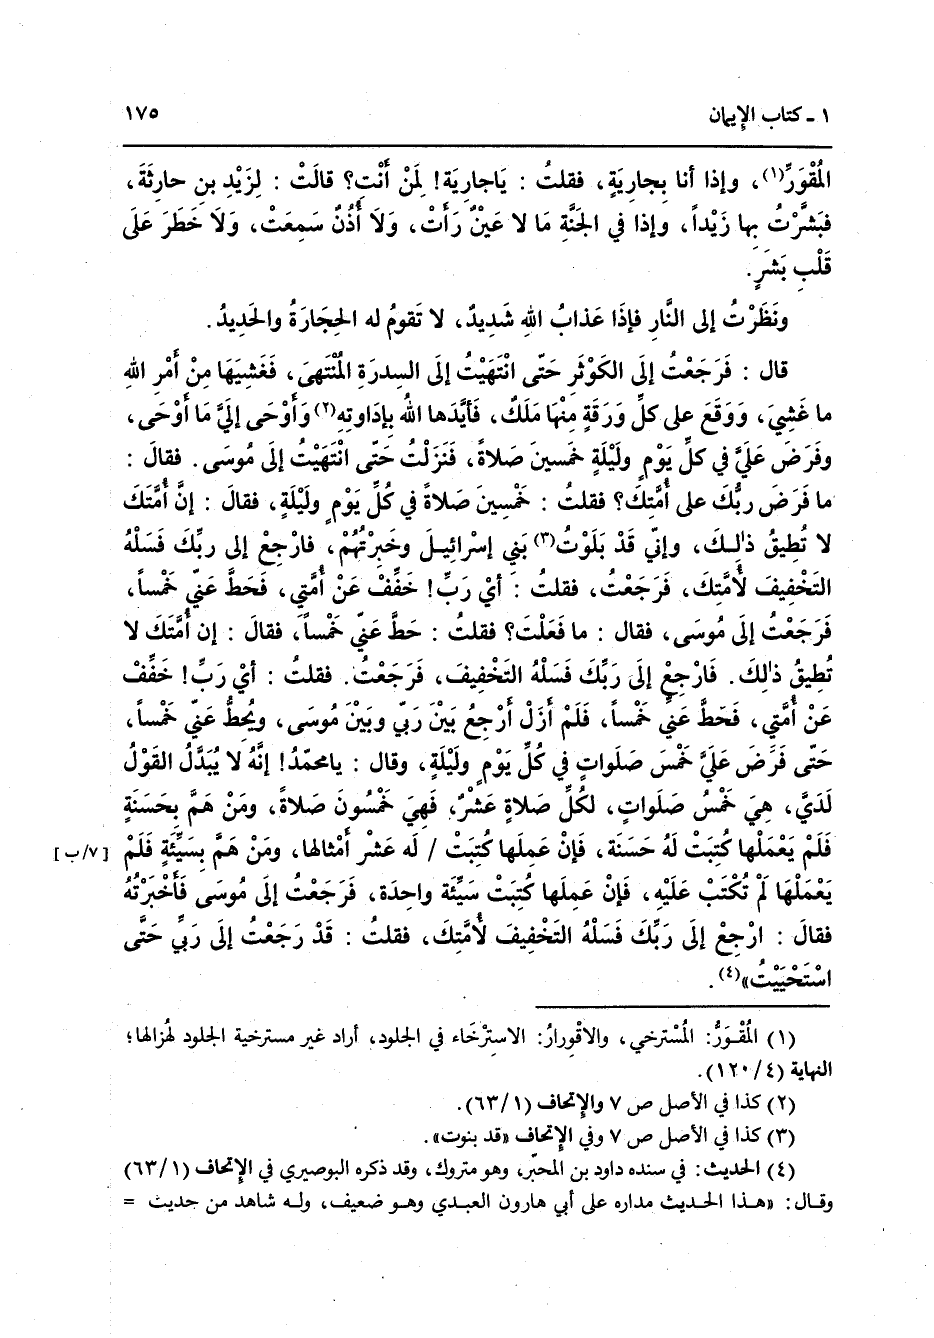 ١ ـ كتاب الإيمان ١٧٥
المُقْوَرِّ(١)، وإذا أنا بجاريَةٍ، فقلتُ : يَاجاريَة! لِمَنْ أَنْتِ؟ قالَتْ : لِزَيْدِ بن حارِثَةَ،
فبَشَّرْتُ بها زَيْداً، وإذا في الجَنَّةِ مَا لا عَيْنٌ رَأَتْ، وَلَا أُذُنٌ سَمِعَتْ، وَلَا خَطَرَ عَلَى
قَلْبِ بَشَرٍ.
ونَظَرْتُ إلى النَّارِ فإذَا عَذابُ اللهِ شَدِيدٌ، لا تَقومُ له الحِجَارَةُ والحَدِيدُ.
قال : فَرَجَعْتُ إلَى الكَوْثَرِ حَتّى انْتَهَيْتُ إلَى السِدرَةِ المُنْتَهِىَ، فَغَشِيَهَا مِنْ أَمْرِ اللهِ
ما غَشِيَ، وَوَقَعَ على كلِّ وَرَقَةٍ مِنْهَا مَلَكٌ، فَأَيَّدَها اللهُ بإدَاوتِهِ(٢) وَأَوْحَى إلَيَّ مَا أَوْحَى،
وفَرَضَ عَلَيَّ في كلِّ يَوْمٍ ولَيْلَةٍ خَمسينَ صَلاةً، فَنَزَلْتُ حَتّى انْتَهَيْتُ إلَى مُوسَى. فقالَ :
ما فَرَضَ ربُّكَ على أُمَّتِكَ؟ فقلتُ : خَمْسِينَ صَلاةً في كُلِّ يَوْمٍ ولَيْلَةٍ، فقالَ : إنَّ أُمَّتَكَ
لا تُطِيقُ ذٰلِـكَ، وإنّي قَدْ بَلَوْتُ(٣) بَنِي إسْرائِيـلَ وخَبِرْتُهُمْ، فارْجِعْ إلى ربِّكَ فَسَلْهُ
التَخْفِيفَ لأُمَّتِكَ، فَرَجَعْتُ، فقلتُ : أيْ رَبِّ! خَفِّفْ عَنْ أُمَّتِي، فَحَطَّ عَنّي خَمْساً،
فَرَجَعْتُ إلَى مُوسَى، فقال : ما فَعَلْتَ؟ فقلتُ : حَطَّ عَنّي خَمْساً، فقالَ : إن أُمَّتَكَ لا
تُطِيقُ ذٰلِكَ. فَارْجِعْ إلَى رَبِّكَ فَسَلْهُ التَخْفِيفَ، فَرَجَعْتُ. فقلتُ : أيْ رَبِّ! خَفِّفْ
عَنْ أُمَّتِي، فَحَطَّ عَنِّي خَمْساً، فَلَمْ أَزَلْ أَرْجِعُ بَيْنَ رَبّي وبَيْنَ مُوسَى، ويُحطُّ عَنّي خَمْساً،
حَتّى فَرَضَ عَلَيَّ خَمْسَ صَلَواتٍ في كُلِّ يَوْمٍ ولَيْلَةٍ، وقال : يامحمّدُ! إنَّهُ لا يُبَدَّلُ القَوْلُ
لَدَيَّ، هِيَ خَمْسُ صَلَواتٍ، لكُلِّ صَلاةٍ عَشْرٌ، فَهِيَ خَمْسُونَ صَلاةً، ومَنْ هَمَّ بِحَسَنَةٍ
فَلَمْ يَعْمَلْها كُتِبَتْ لَهُ حَسَنَة، فَإنْ عَمِلَها كُتِبَتْ / لَه عَشْر أَمْثالها، ومَنْ هَمَّ بِسَيِّئَةٍ فَلَمْ [٧/ب]
يَعْمَلْهَا لَمْ تُكْتَبْ عَلَيْهِ، فَإنْ عَمِلَها كُتِبَتْ سَيِّئَة واحِدَة، فَرَجَعْتُ إلَى مُوسَى فَأَخْبَرْتُهُ
فقالَ : ارْجِعْ إلَى رَبِّكَ فَسَلْهُ التَخْفِيفَ لأُمَّتِكَ، فقلتُ : قَدْ رَجَعْتُ إلَى رَبِّي حَتَّى
اسْتَحْيَيْتُ»(٤).
(١) المُقْوَرُّ: المُسْترخي، والاقْورارُ: الاسترْخَاء في الجلود، أراد غير مسترخية الجلود لهُزالها؛
النهاية (٤/ ١٢٠).
(٢) كذا في الأصل ص ٧ والإتحاف (١/ ٦٣).
(٣) كذا في الأصل ص ٧ وفي الإتحاف «قد بنوت».
(٤) الحديث: في سنده داود بن المحبّر، وهو متروك، وقد ذكره البوصيري في الإتحاف (١/ ٦٣)
وقـال: «هـذا الحـديث مداره على أبي هارون العبـدي وهـو ضعيف، ولـه شاهد من حديث =